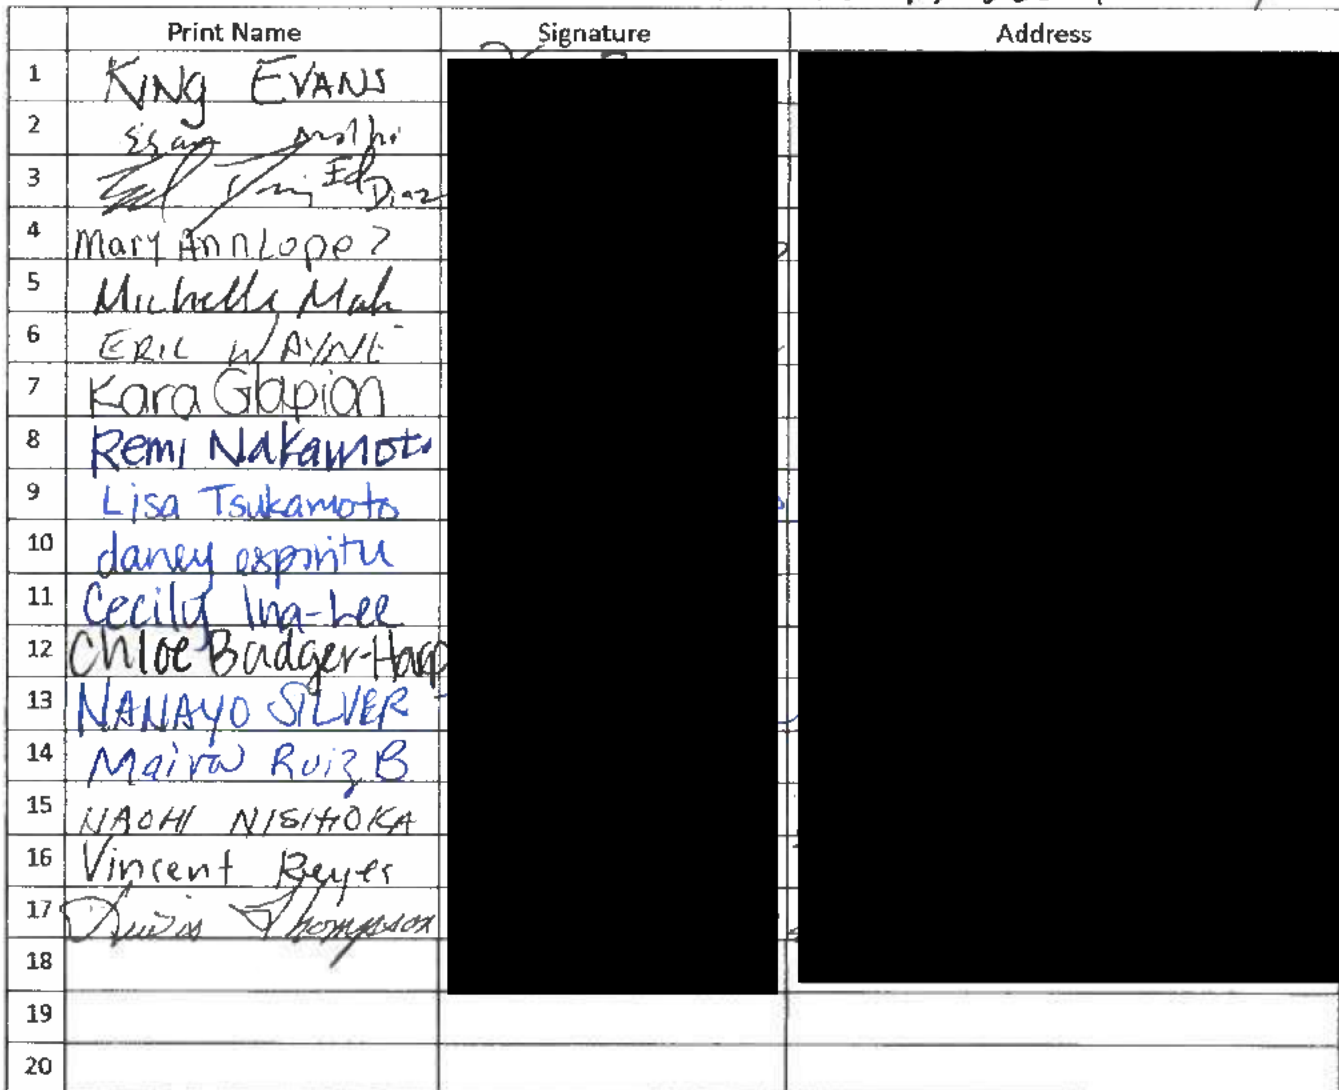 Print Name Signature Address
1 KING EVANS
2
3 Ed Diaz
4 Mary Ann Lopez
5 Michelle Mah
6 ERIC WAYNE
7 Kara Glapion
8 Remi Nakamoto
9 Lisa Tsukamoto
10 daney espiritu
11 Cecily Ina-Lee
12 Chloe Badger-Harp
13 NANAYO SILVER
14 Maira Ruiz B
15 NAOMI NISHIOKA
16 Vincent Reyes
17 Thompson
18
19
20